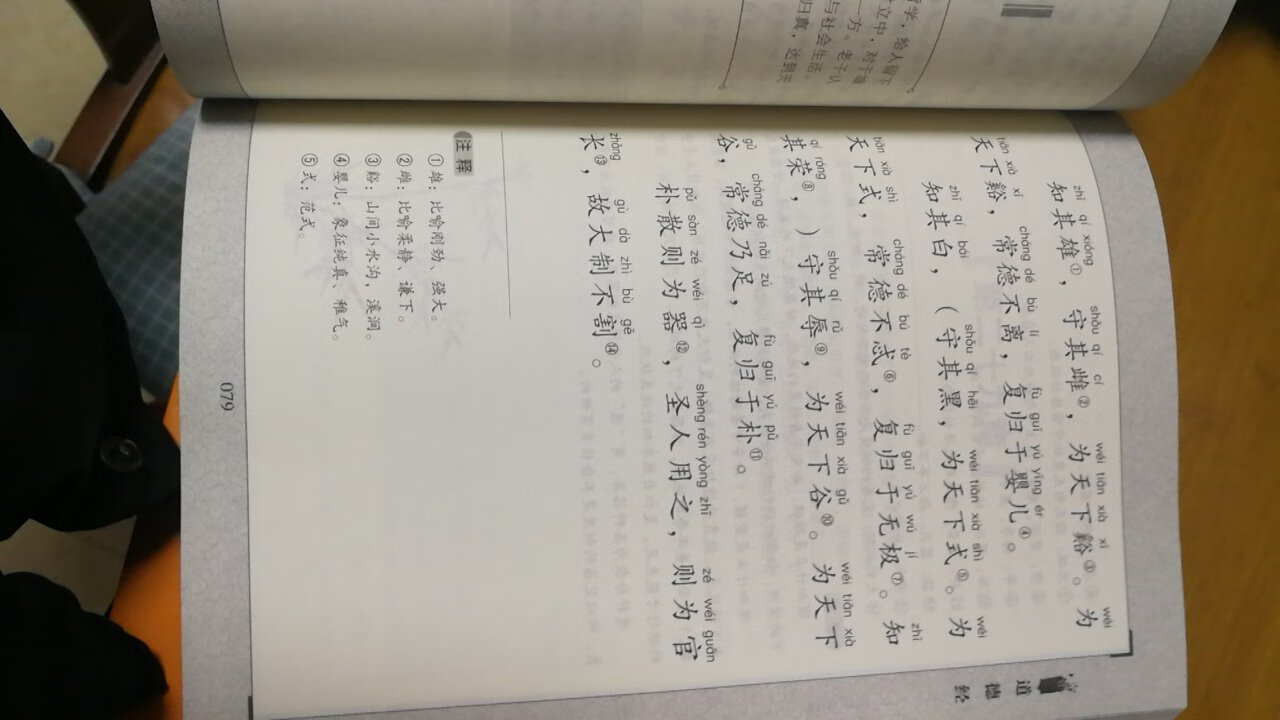 学，给人留下
立中，对于
一方。老子认
与社会生活。
归真，达到天
道德经
zhī qí xióng shǒu qí cí wéi tiān xià xī wéi
知其雄①，守其雌②，为天下谿③。为
tiān xià xī cháng dé bù lí fù guī yú yīng ér
天下谿，常德不离，复归于婴儿④。
zhī qí bái shǒu qí hēi wéi tiān xià shì wéi
知其白，（守其黑，为天下式⑤。为
tiān xià shì cháng dé bú tè fù guī yú wú jí zhī
天下式，常德不忒⑥，复归于无极⑦。知
qí róng shǒu qí rǔ wéi tiān xià gǔ wéi tiān xià
其荣⑧，）守其辱⑨，为天下谷⑩。为天下
gǔ cháng dé nǎi zú fù guī yú pǔ
谷，常德乃足，复归于朴⑪。
pǔ sàn zé wéi qì shèng rén yòng zhī zé wéi guān
朴散则为器⑫，圣人用之，则为官
zhǎng gù dà zhì bù gē
长⑬，故大制不割⑭。
注释
①雄：比喻刚劲、强大。
②雌：比喻柔静、谦下。
③谿：山间小水沟，溪涧。
④婴儿：象征纯真、稚气。
⑤式：范式。
079